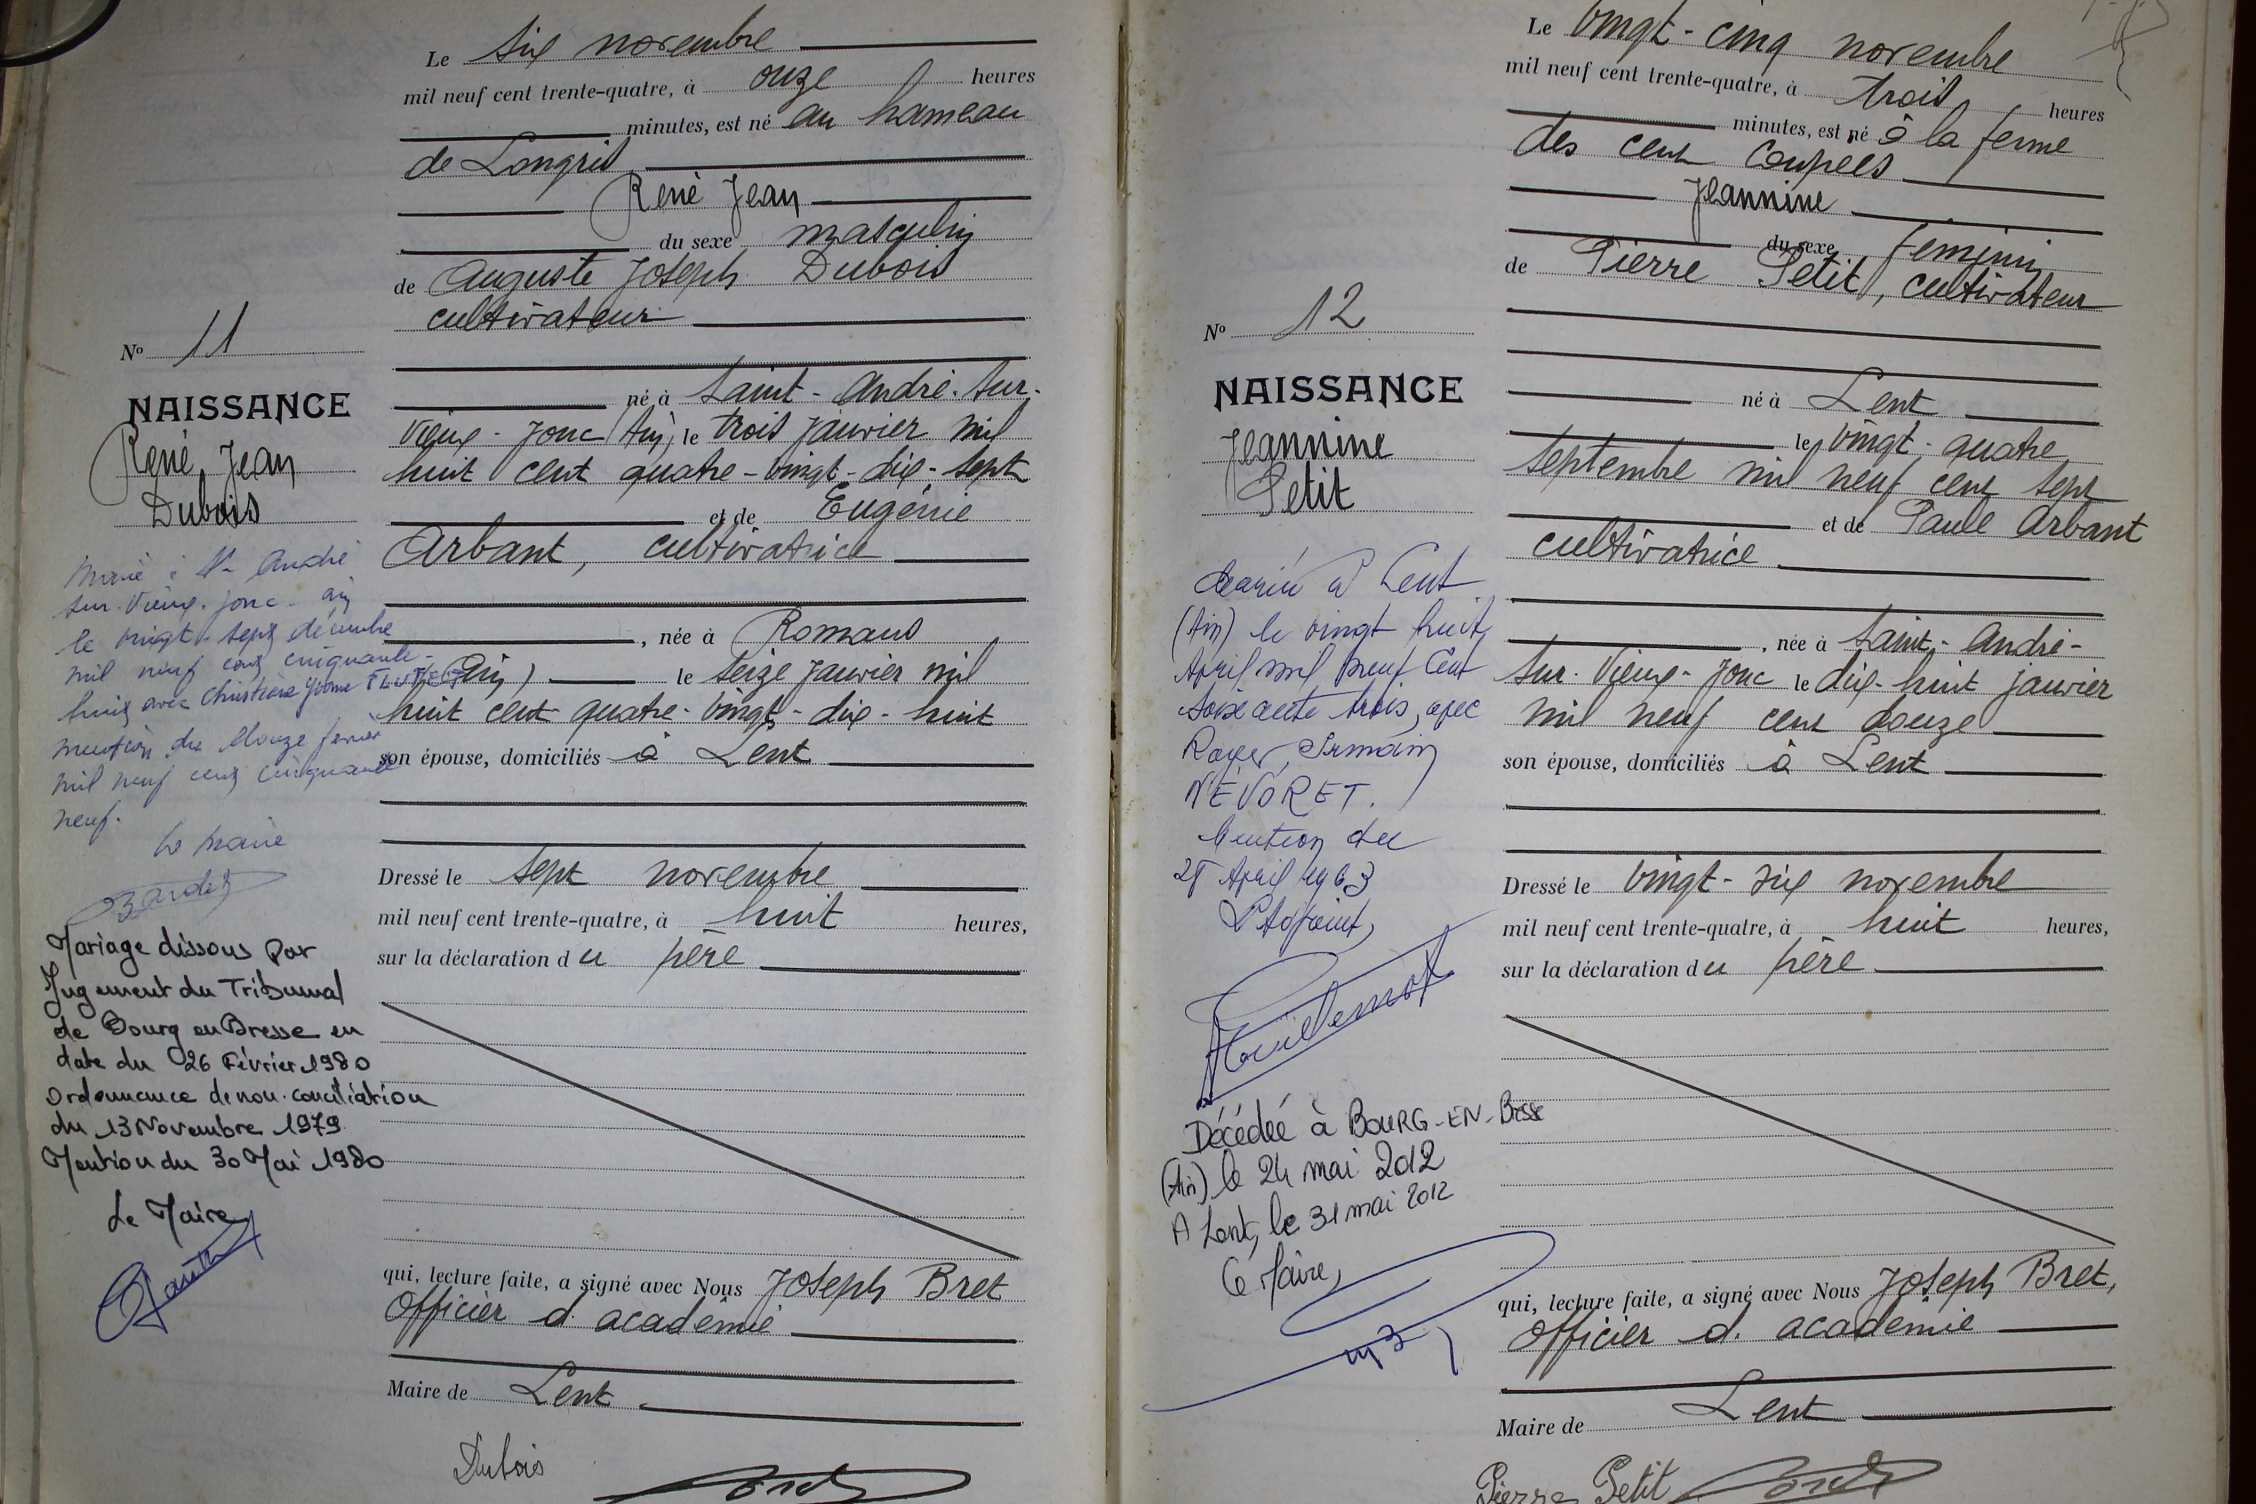 Le six novembre
mil neuf cent trente-quatre, à onze heures
minutes, est né au hameau
de Longris
René Jean
du sexe masculin
de Auguste Joseph Dubois
cultivateur
né à Saint-André-sur-
Vieux-Jonc (Ain), le trois janvier mil
huit cent quatre-vingt-dix-sept
et de Eugénie
Arbant, cultivatrice
, née à Romans
(Ain) le seize janvier mil
huit cent quatre-vingt-dix-huit
son épouse, domiciliés à Lent
Dressé le sept novembre
mil neuf cent trente-quatre, à huit heures,
sur la déclaration du père
qui, lecture faite, a signé avec Nous Joseph Bret
Officier d'académie
Maire de Lent
Dubois
No 11
NAISSANCE
René Jean
Dubois
Marié à St André
sur-Vieux-Jonc Ain
le vingt-sept décembre
mil neuf cent cinquante-
huit avec Christiane Yvonne
mention du douze février
mil neuf cent cinquante
neuf.
Le Maire
Mariage dissous par
Jugement du Tribunal
de Bourg en Bresse en
date du 26 Février 1980
Ordonnance de non-conciliation
du 13 Novembre 1979
Mention du 30 Mai 1980
Le Maire
Le vingt-cinq novembre
mil neuf cent trente-quatre, à trois heures
minutes, est né à la ferme
des cent Coupées
Jeannine
du sexe féminin
de Pierre Petit, cultivateur
né à Lent
le vingt-quatre
septembre mil neuf cent sept
et de Paule Arbant
cultivatrice
, née à Saint-André-
sur-Vieux-Jonc le dix-huit janvier
mil neuf cent douze
son épouse, domiciliés à Lent
Dressé le vingt-six novembre
mil neuf cent trente-quatre, à huit heures,
sur la déclaration du père
qui, lecture faite, a signé avec Nous Joseph Bret,
Officier d'académie
Maire de Lent
Pierre Petit
No 12
NAISSANCE
Jeannine
Petit
Mariée à Lent
(Ain) le vingt huit
Avril mil neuf cent
soixante trois, avec
Roger, Germain
NÉVORET.
Mention du
Avril 1963
L'Adjoint,
Décédée à BOURG-EN-Bresse
(Ain) le 24 mai 2012
A Lent, le 31 mai 2012
Le Maire,